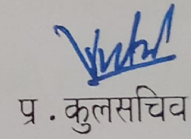 प्र . कुलसचिव